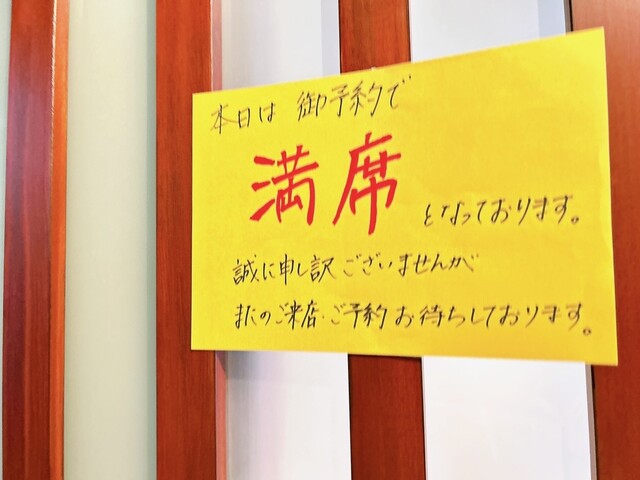 本日は 御予約で
満席 となっております。
誠に申し訳ございませんが
またのご来店・ご予約お待ちしております。